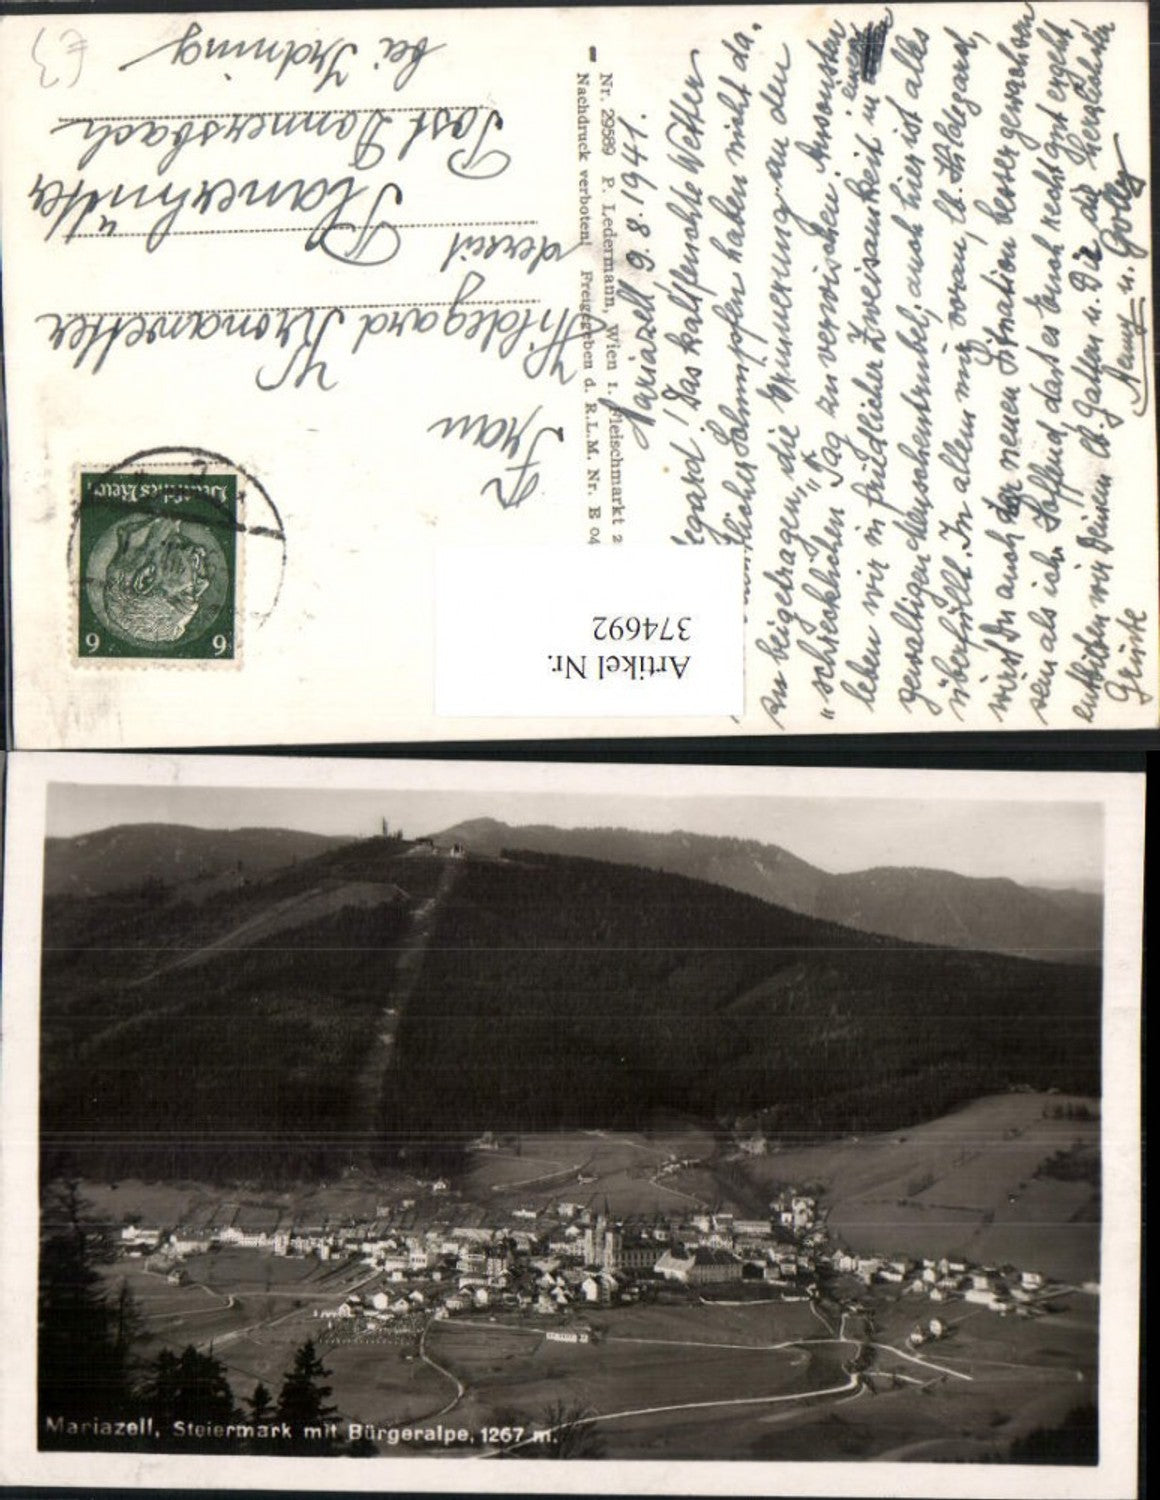 Mariazell 9.8.1941.
degard! Das kaltfeuchte Wetter
dlicher Schnupfen haben nicht da-
zu beigetragen, die Erinnerung an den
„schrecklichen" Tag zu verwischen. Ansonsten
leben wir in friedlicher Zweisamkeit in einem
gewaltigen Menschentrubel; auch hier ist alles
überfüllt. In allem mir voran, lb. Hildegard,
wirst Du auch der neuen Situation besser gewachsen
sein als ich. Hoffend, dass es Euch recht gut ergeht,
entbieten wir Deinem lb. Gatten u. Dir die herzlichsten
Grüsse
u. Golly
Nr. 29589 P. Ledermann, Wien 1. Fleischmarkt 2
Nachdruck verboten! Freigegeben d. R.L.M. Nr. E 04
Frau
Hildegard Kronawetter
derzeit Planerhütte
Post Donnersbach
bei Irdning
€3
Deutsches Reich
6 6
Artikel Nr.
374692
Mariazell, Steiermark mit Bürgeralpe, 1267 m.